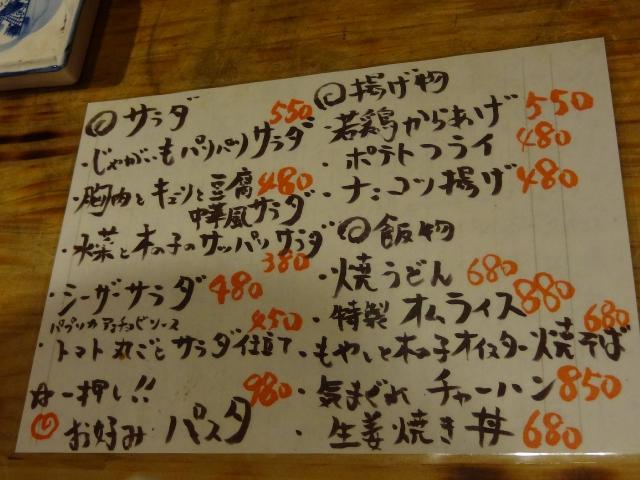 サラダ
550
・じゃがいもパリパリサラダ
・胸肉とキュウリと豆腐 480
中華風サラダ
・水菜と木の子のサッパリサラダ
380
・シーザーサラダ 480
パプリカアンチョビソース
450
・トマト丸ごとサラダ仕立て
一押し!! 980
お好みパスタ
揚げ物
・若鶏からあげ 550
・ポテトフライ 480
・ナンコツ揚げ 480
飯物
・焼うどん 680
・特製オムライス 880
680
・もやしと木の子オイスター焼そば
・気まぐれチャーハン 850
・生姜焼き丼 680